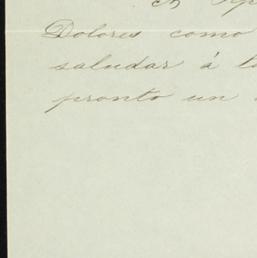 Dolores como
saludar á
pronto un